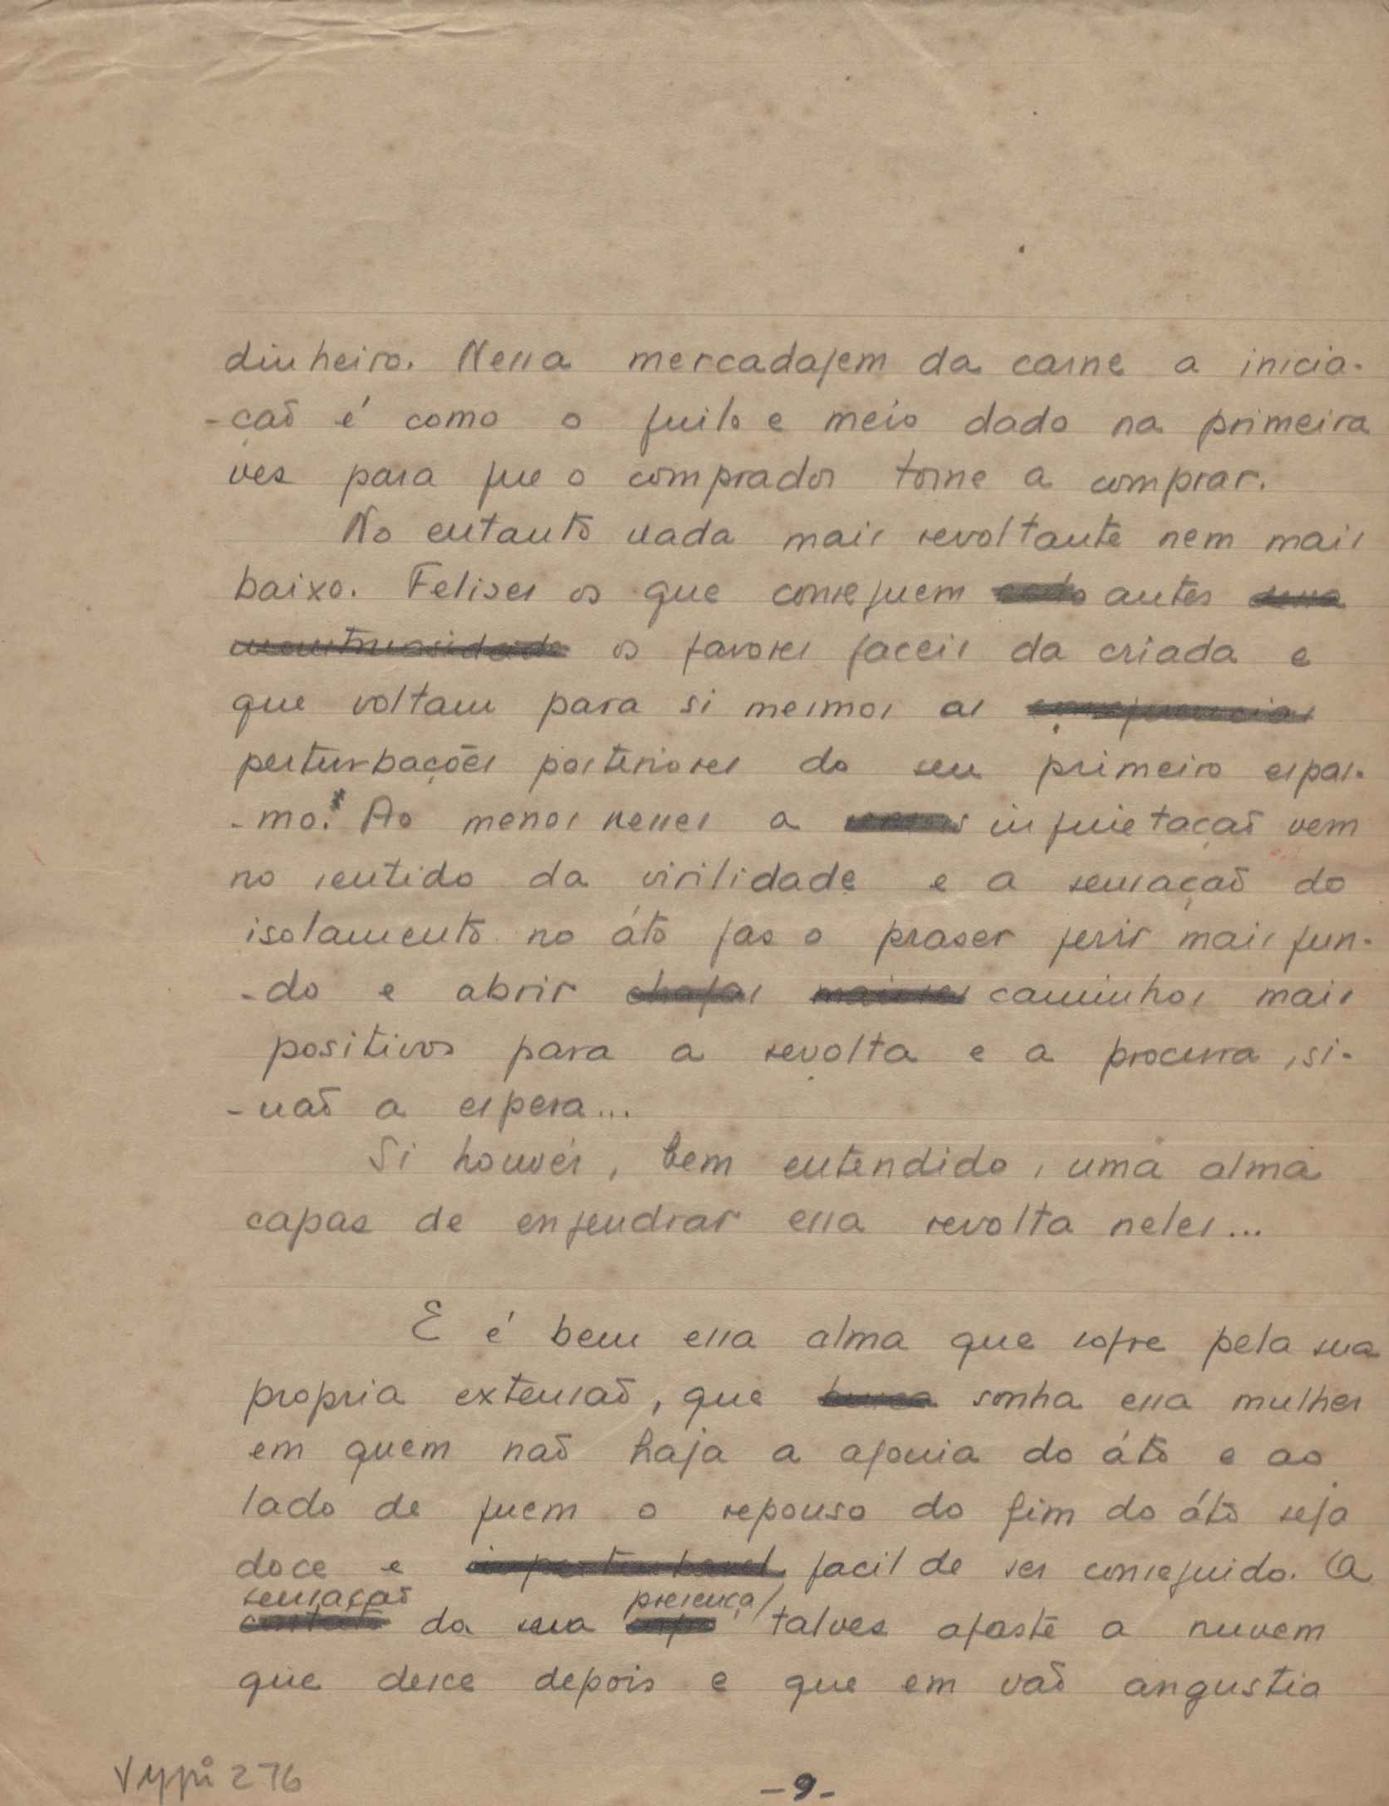 dinheiro. Nessa mercadajem da carne a inicia-
-çaõ é como o quilo e meio dado na primeira
ves para que o comprador torne a comprar.
No entanto nada mais revoltante nem mais
baixo. Felises os que conseguem antes
os favores faceis da criada e
que voltam para si mesmos as
perturbações posteriores do seu primeiro espas-
-mo.* Ao menos nesses a inquietaçaõ vem
no sentido da virilidade e a sensaçaõ do
isolamento no áto fas o praser ferir mais fun-
-do e abrir chagas maiores caminhos mais
positivos para a revolta e a procura, si-
-naõ a espera...
Si houver, bem entendido, uma alma
capas de engendrar essa revolta neles...
E é bem essa alma que sofre pela sua
propria extensaõ, que busca sonha essa mulher
em quem naõ haja a agonia do áto e ao
lado de quem o repouso do fim do áto seja
doce e imperturbavel facil de ser conseguido. A
sensaçaõ presença/
da sua talves afaste a nuvem
que desce depois e que em vaõ angustia
276
-9-